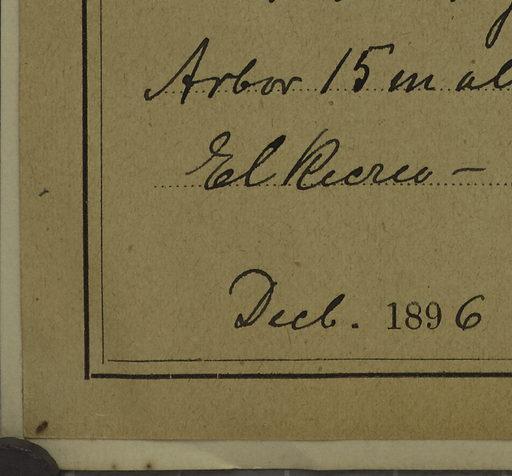 Arbor 15 m al
El Recreo –
Decb. 1896